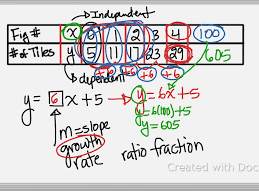 Independent
Fig # x 0 1 2 3 4 100
# of Tiles y 5 11 17 23 29 605
dependent +6 +6 +6 +6
y = 6x+5 → y = 6x+5
y = 6(100)+5
m=slope y = 605
growth rate
ratio fraction
Created with Doc